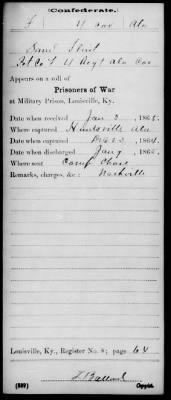 (Confederate.)
F 4 Cav Ala
Saml Flint
Pvt Co F 4 Regt Ala Cav
Appears on a roll of
Prisoners of War
at Military Prison, Louisville, Ky.
Date when received Jan 2, 1865.
Where captured Huntsville Ala
Date when captured Dec 23, 1864.
Date when discharged Jan 9, 1865.
Where sent Camp Chase
Remarks, charges, &c.: Nashville
Louisville, Ky., Register No. 8; page 64
(539) Copyist.